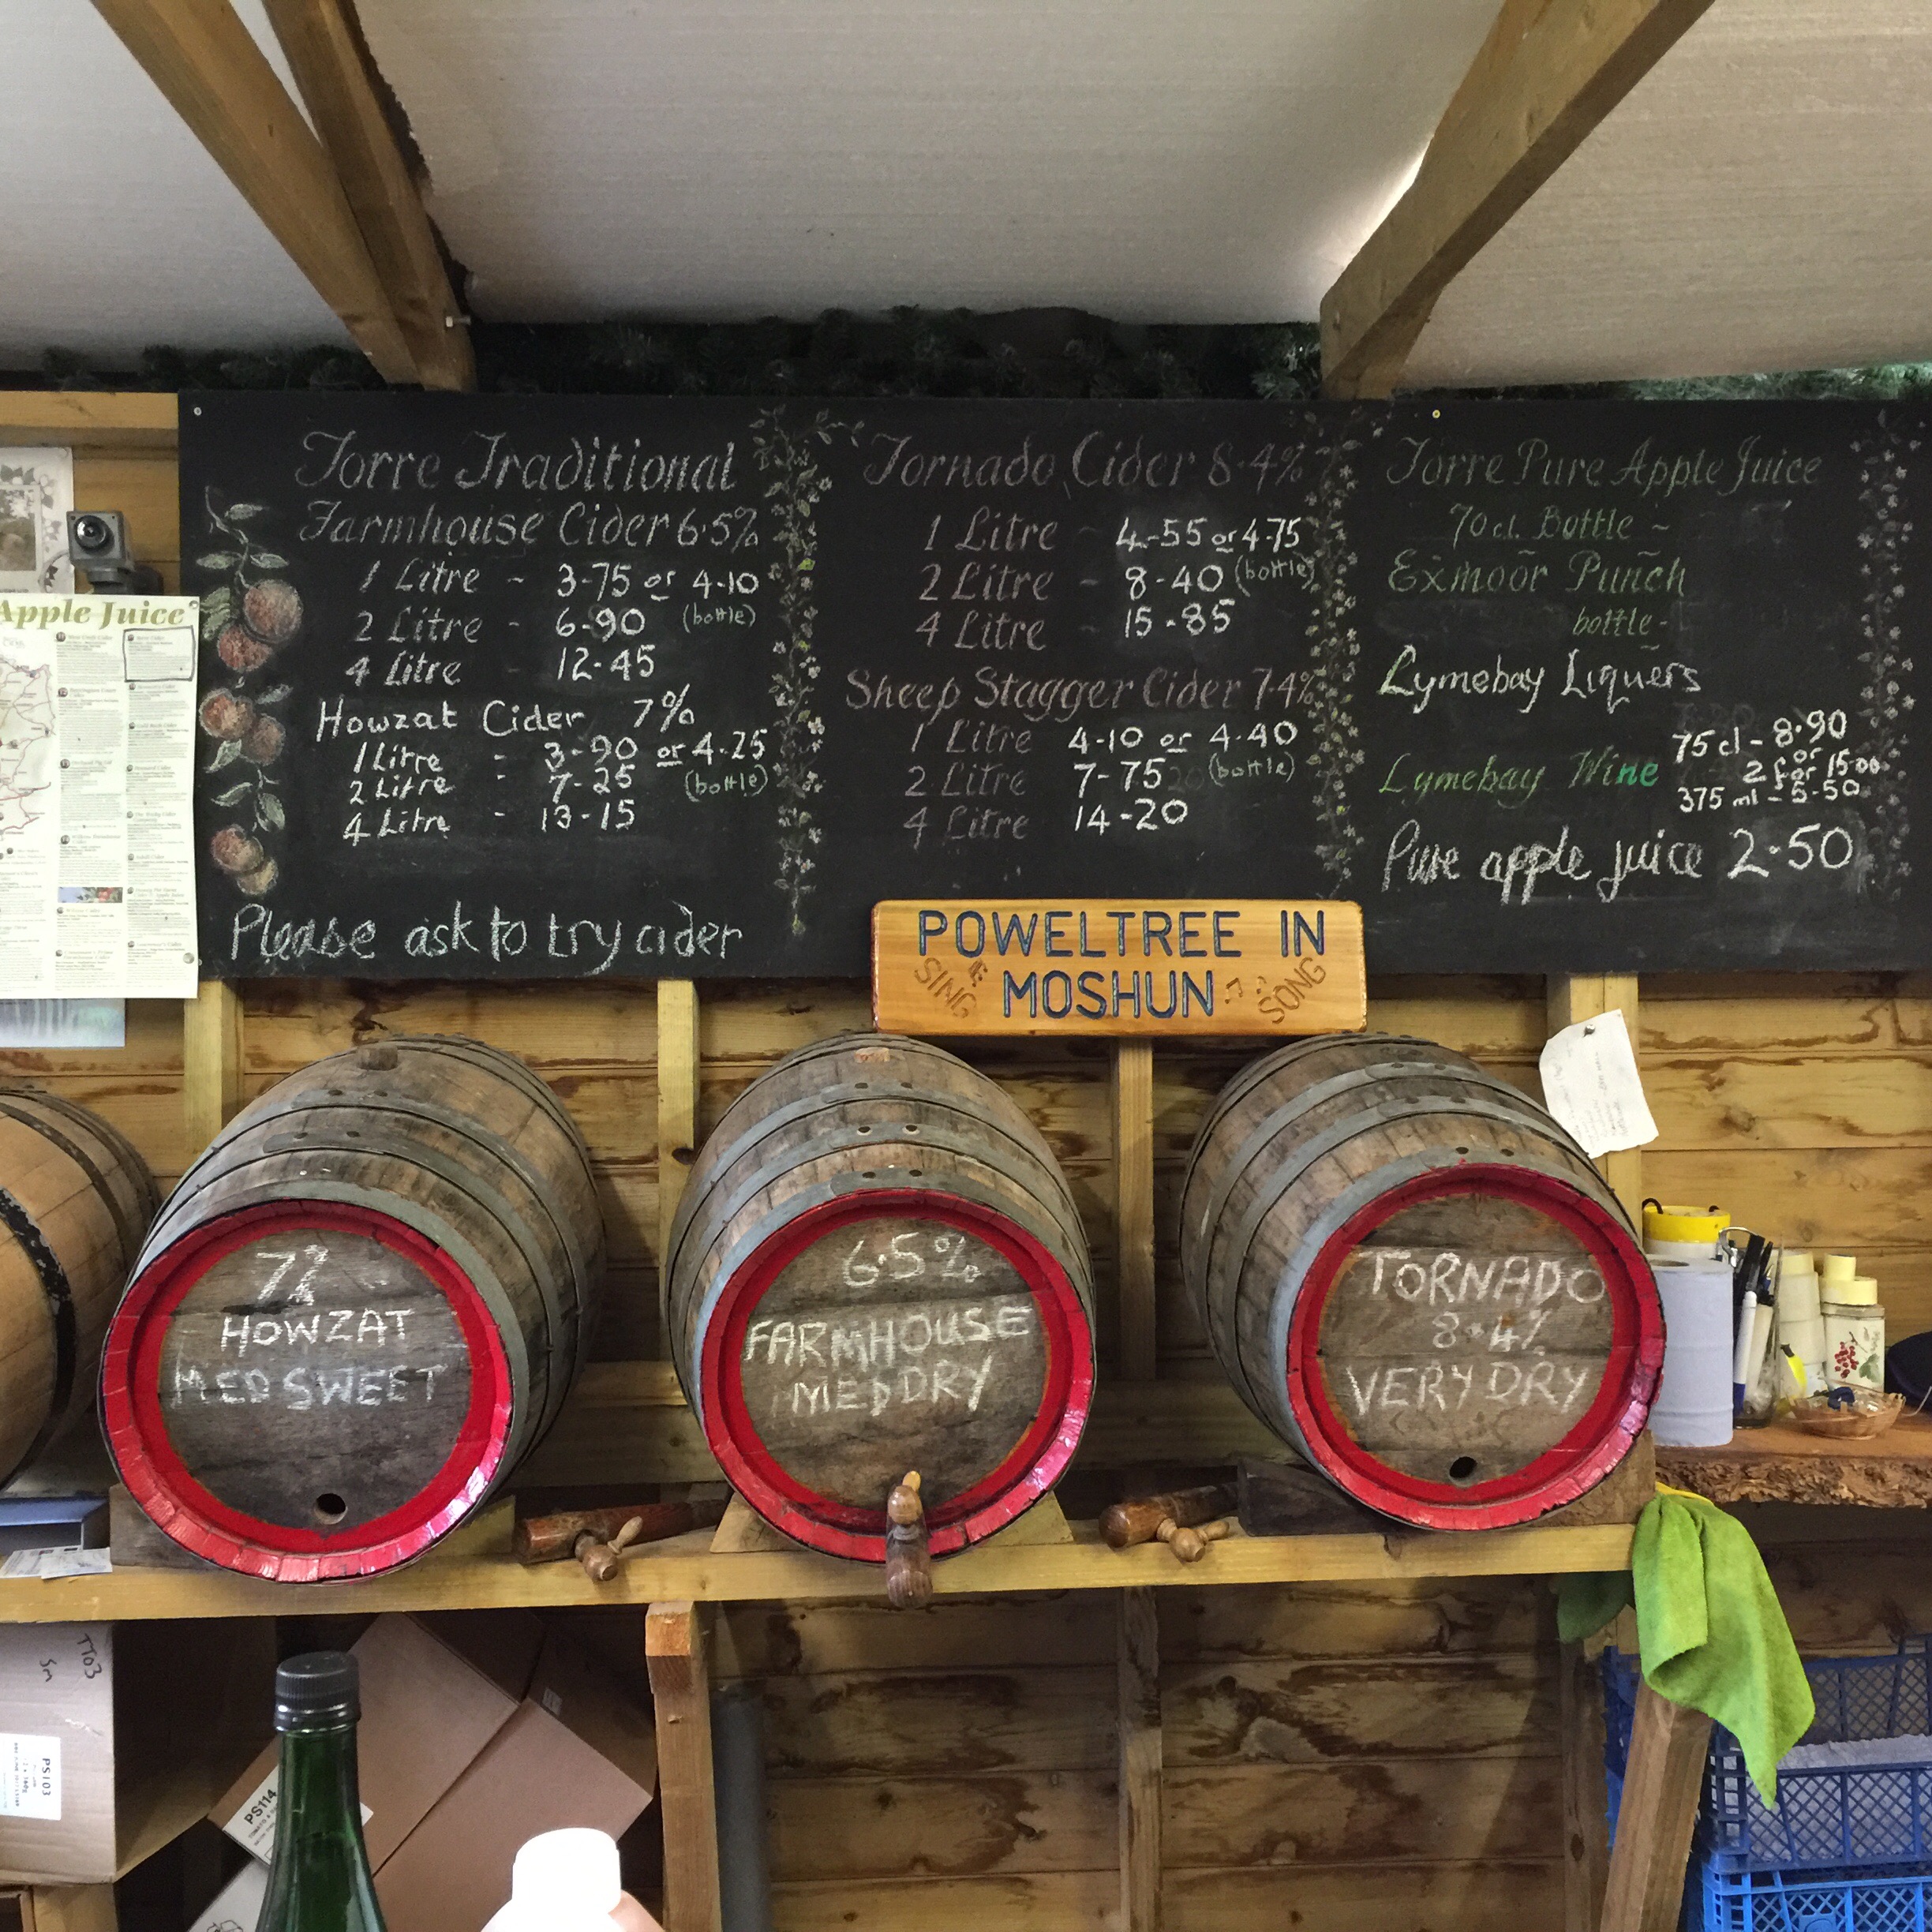 Torre Traditional
Farmhouse Cider 6.5%
1 Litre - 3-75 or 4-10
2 Litre - 6-90 (bottle)
4 Litre - 12-45
Howzat Cider 7%
1 Litre - 3-90 or 4-25
2 Litre - 7-25 (bottle)
4 Litre - 13-15
Please ask to try cider
Tornado Cider 8.4%
1 Litre - 4-55 or 4-75
2 Litre - 8-40 (bottle)
4 Litre - 15-85
Sheep Stagger Cider 7.4%
1 Litre 4-10 or 4-40
2 Litre 7-75 (bottle)
4 Litre 14-20
Torre Pure Apple Juice
70cl. Bottle ~
Exmoor Punch
bottle -
Lymebay Liquers
Lymebay Wine
75cl - 8.90
or
2 for 15.00
375 ml - 5-50
Pure apple juice 2.50
Apple Juice
POWELTREE IN
MOSHUN
SING
SONG
7%
HOWZAT
MED SWEET
6.5%
FARMHOUSE
MED DRY
TORNADO
8.4%
VERY DRY
TT03
PS103
PS114